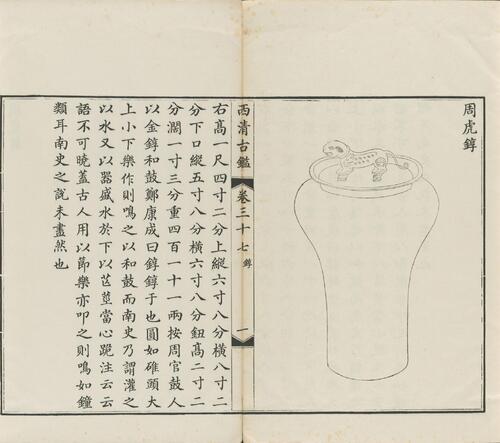 周虎錞
西清古鑑 卷三十七 錞 一
右高一尺四寸二分上縱六寸八分橫八寸二
分下口縱五寸八分橫六寸八分鈕高二寸二
分濶一寸三分重四百一十一兩按周官鼓人
以金錞和鼓鄭康成曰錞錞于也圓如碓頭大
上小下樂作則鳴之以和鼓而南史乃謂灌之
以水又以器盛水於下以芒莖當心跪注云云
語不可曉蓋古人用以節樂亦叩之則鳴如鐘
類耳南史之説未盡然也